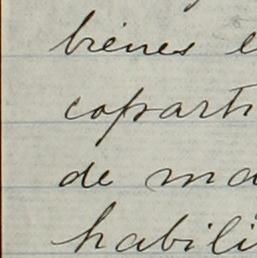 bienes e
coparti
de ma
habili